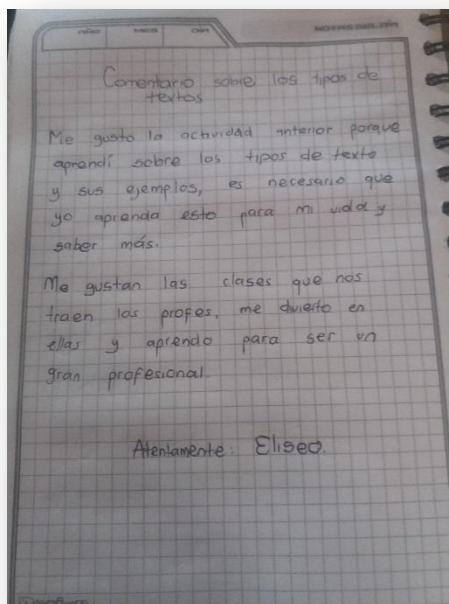 AÑO MES DÍA NOTAS DEL DÍA
Comentario sobre los tipos de
textos
Me gusto la actividad anterior porque
aprendí sobre los tipos de texto
y sus ejemplos, es necesario que
yo aprenda esto para mi vida y
saber más.
Me gustan las clases que nos
traen los profes, me divierto en
ellas y aprendo para ser un
gran profesional.
Atentamente: Eliseo.